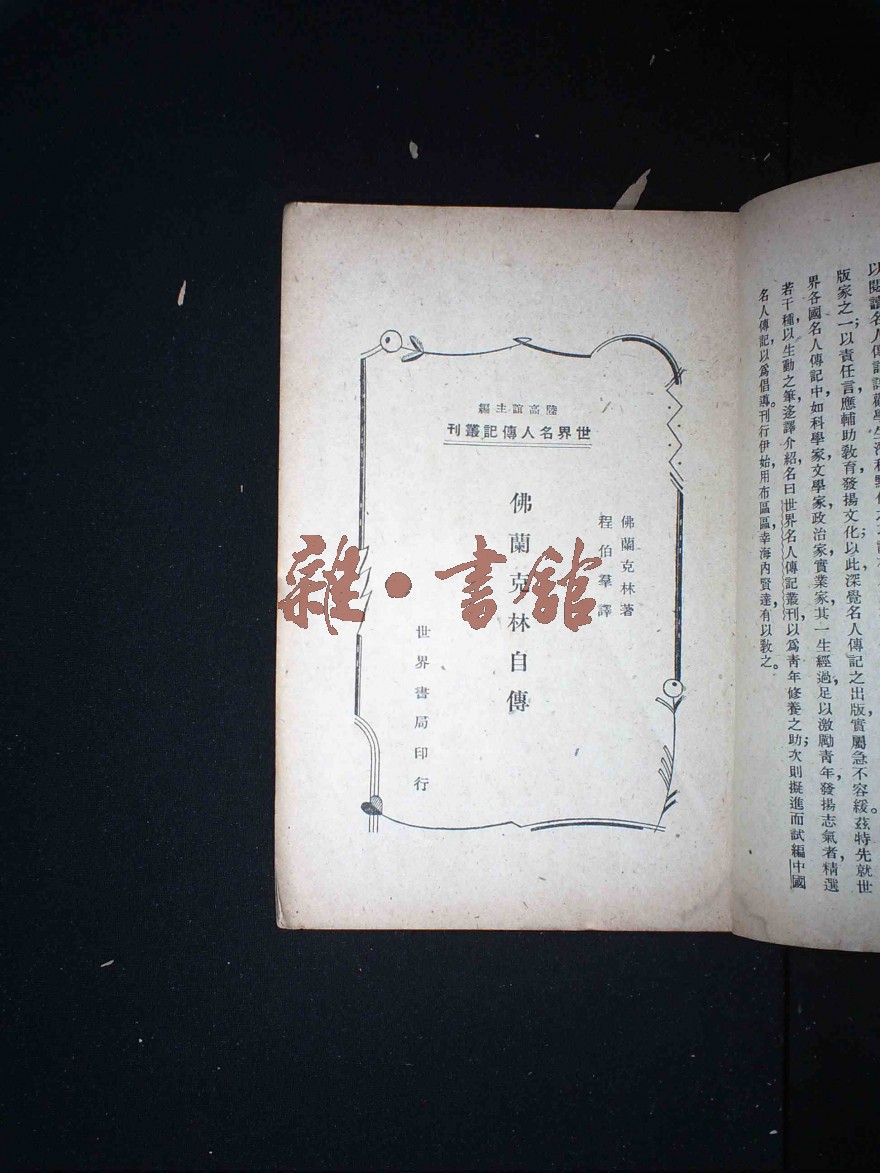 以閱讀名人傳記
版家之一;以責任言應輔助教育發揚文化;以此深覺名人傳記之出版,實屬急不容緩。茲特先就世
界各國名人傳記中,如科學家,文學家,政治家,實業家,其一生經過,足以激勵青年,發揚志氣者,精選
若干種,以生動之筆,迻譯介紹,名曰世界名人傳記叢刊,以爲青年修養之助;次則擬進而試編中國
名人傳記,以爲倡導。刊行伊始,用布區區,幸海內賢達有以敎之。
陸高誼主編
世界名人傳記叢刊
佛蘭克林著
程伯羣譯
佛蘭克林自傳
世界書局印行
雜·書館